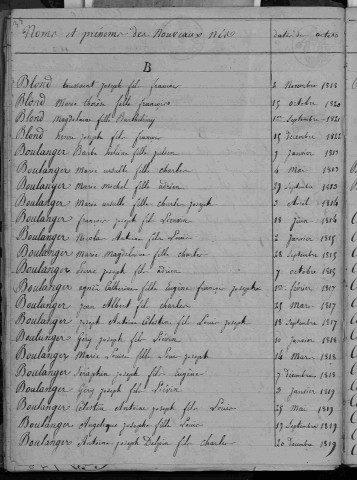 Noms et prénoms des Nouveaux Nés date des actes
B
Blond toussaint joseph fils francois 2 Novembre 1818
Blond Marie thérèse fille françois 13 octobre 1820
Blond Magdelaine fille Barthélemy 1er Septembre 1821
Blond henri joseph fils françois 15 décembre 1822
Boulanger Barbe fille julien 9 janvier 1813
Boulanger Marie fille charles 4 Mai 1813
Boulanger Marie michel fille adrien 29 Septembre 1813
Boulanger Marie fille charles joseph 2 Avril 1814
Boulanger francois joseph fils Liévin 18 juin 1814
Boulanger Nicolas Antoine fils Louis 2 janvier 1815
Boulanger Marie Magdelaine fille charles 28 Septembre 1815
Boulanger Pierre joseph fils adrien 7 octobre 1815
Boulanger Catherine fille Eugène francois joseph 10 février 1817
Boulanger jean Albert fils charles 25 Mars 1817
Boulanger joseph Antoine Célestin fils Louis joseph 18 Septembre 1817
Boulanger Géry joseph fils Liévin 10 janvier 1818
Boulanger Marie Louise fille Louis joseph 14 Mars 1818
Boulanger Séraphin joseph fils Eugène 7 décembre 1818
Boulanger Géry joseph fils Liévin 2 janvier 1819
Boulanger Célestin Antoine joseph fils Louis 25 Mai 1819
Boulanger Angélique joseph fille Louis 19 Septembre 1819
Boulanger Antoine joseph Delphin fils charles 20 Décembre 1819